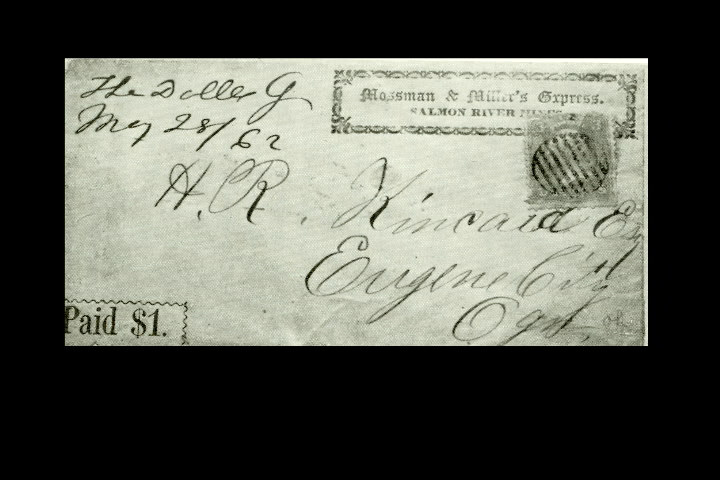 The Dalles O
May 28/62
Mossman & Miller's Express.
SALMON RIVER MINES
H. R. Kincaid Esq
Eugene City
Ogn.
Paid $1.